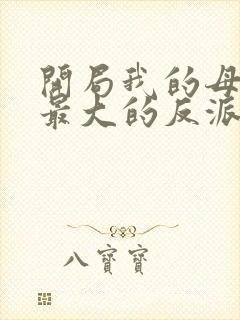 開局我的母
最大的反派
八寶寶